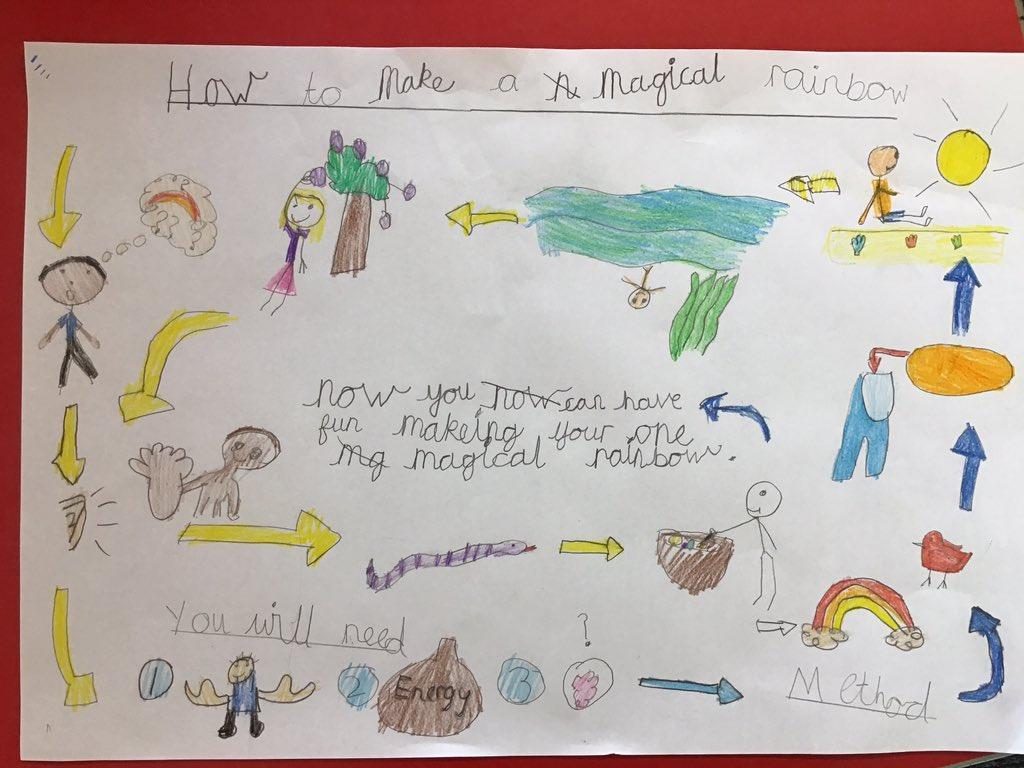 How to Make a A magical rainbow
now you now can have
fun makeing your one
mg magical rainbow.
You will need
1 2 Energy 3 ?
Method